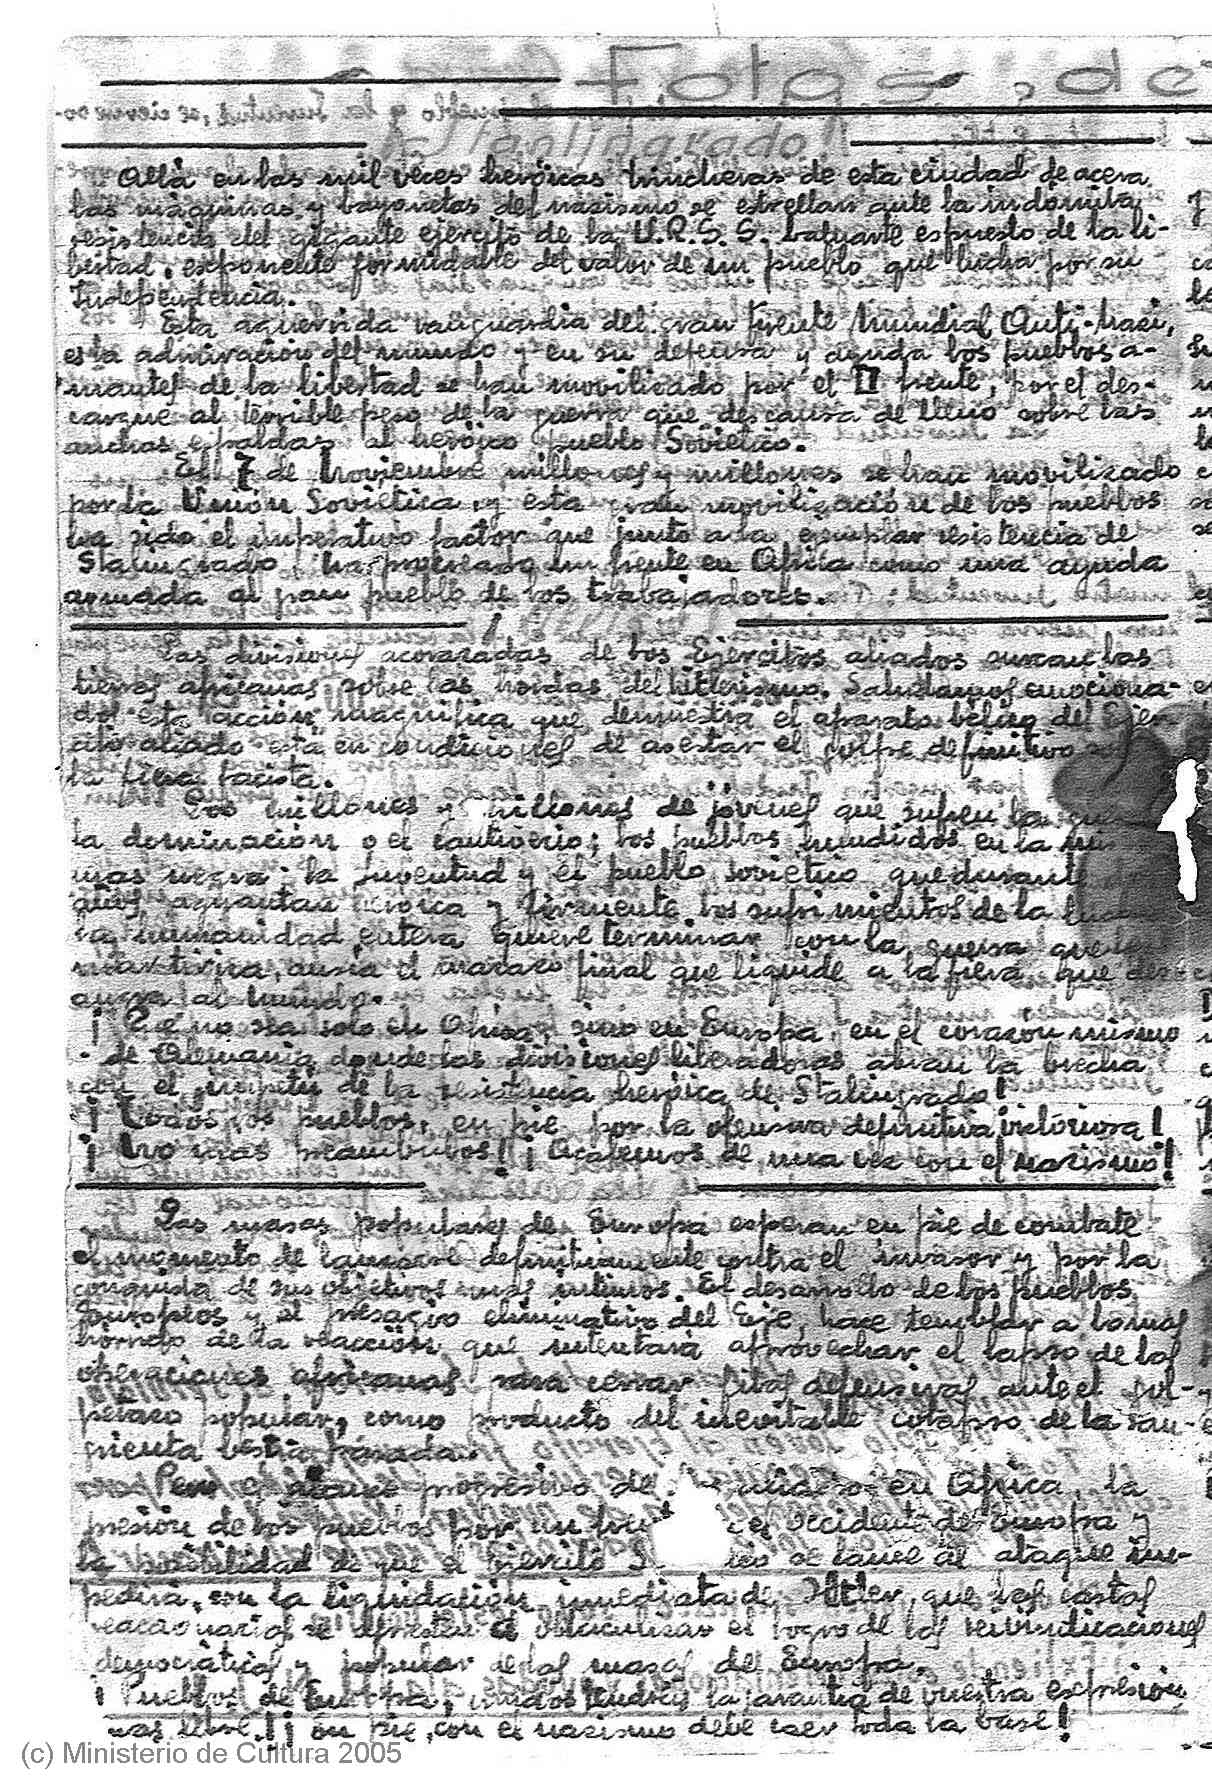 Fotos de
¡Stanlingrado!
Allà en las mil veces heróicas trincheras de esta ciudad de acero,
las máquinas y bayonetas del nazismo se estrellan ante la indómita
resistencia del gigante ejercito de la U.R.S.S. baluarte espuesto de la li-
bertad, esponente formidable del valor de un pueblo que lucha por su
Independencia.
Esta aguerrida vanguardia del gran frente Mundial Anti-Nazi,
es la admiración del mundo y en su defensa y ayuda los pueblos a-
mantes de la libertad se han movilizado por el II frente, por el des-
cargue al terrible peso de la guerra que descansa de lleno sobre las
anchas espaldas al heróico pueblo Sovietico.
El 7 de Noviembre, millones y millones se han movilizado
por la Unión Sovietica, y esta gran movilización de los pueblos
ha sido el imperativo factor que junto a la ejemplar resistencia de
Stalingrado, ha provocado un frente en Africa como una ayuda
armada al gran pueblo de los trabajadores.
Las divisiones acorazadas de los Ejercitos aliados surcan las
tierras africanas sobre las hordas del hitlerismo. Saludamos emociona-
dos esta acción magnifica que demuestra el aparato bélico del Ejer-
cito aliado está en condiciones de asestar el golpe definitivo
la fiera facista.
Los millones y millones de jóvenes que sufren la
la dominación o el cautiverio; los pueblos hundidos en la
mas negra; la juventud y el pueblo sovietico que durante
años aguantan heroica y firmemente los sufrimientos de la
la humanidad entera quiere terminar con la guerra que la
martiriza, ansia el mazazo final que liquide a la fiera que des-
angra al mundo.
¡Que no sea solo en Africa, sino en Europa, en el corazón mismo
de Alemania donde las divisiones liberadoras abran la brecha
con el impetú de la resistencia heroica de Stalingrado!
¡Todos los pueblos, en pie por la ofensiva definitiva victoriosa!
¡No mas preambulos! ¡Acabemos de una vez con el nazismo!
Las masas populares de Europa esperan en pie de combate
el momento de lanzarse definitivamente contra el invasor y por la
conquista de sus objetivos mas intimos. El desarrollo de los pueblos
Europeos y el presagio eliminativo del Eje, hace temblar a lo mas
horrendo de la reacción que intentará aprovechar el lapso de las
operaciones africanas para cerrar filas defensivas ante el gol-
petazo popular, como producto del inevitable colapso de la san-
grienta bestia parda.
Pero el avance progresivo de en Africa, la
presión de los pueblos por un en el Occidente de Europa y
la posibilidad de que el Ejercito se lance al ataque im-
pedirá, con la liquidación inmediata de Hitler, que las castas
reaccionarias se apresten a obstaculizar el logro de las reivindicaciones
democráticas y popular de las masas de Europa.
¡Pueblos de Europa, unidos tendreis la garantia de vuestra expresión
mas libre! ¡En pie, con el nazismo debe caer toda la base!
(c) Ministerio de Cultura 2005